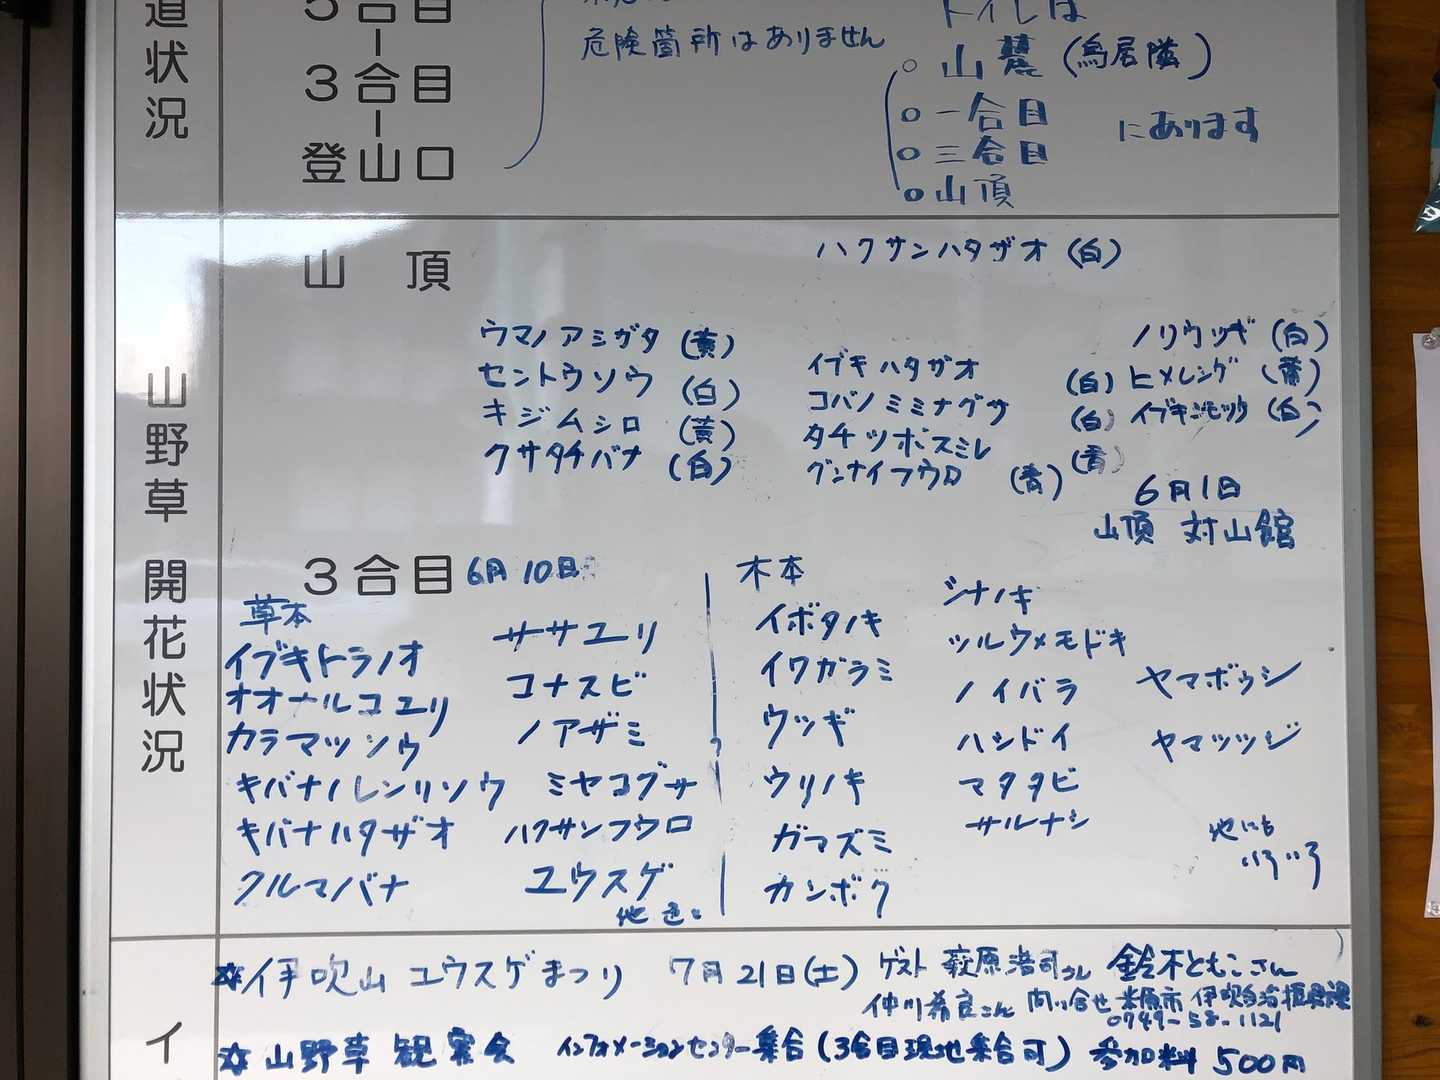 道状況
5合目
3合目
登山口
危険箇所はありません
トイレは
○山麓(鳥居隣)
○一合目
○三合目
○山頂
にあります
山野草開花状況
山頂
ハクサンハタザオ(白)
ウマノアシガタ(黄)
セントウソウ(白)
キジムシロ(黄)
クサタチバナ(白)
イブキハタザオ(白)
コバノミミナグサ(白)
タチツボスミレ(青)
グンナイフウロ(青)
ノリウツギ(白)
ヒメレンゲ(黄)
イブキシモツケ(白)
6月1日
山頂 対山館
3合目 6月10日
草本
イブキトラノオ
オオナルコユリ
カラマツソウ
キバナノレンリソウ
キバナハタザオ
クルマバナ
ササユリ
コナスビ
ノアザミ
ミヤコグサ
ハクサンフウロ
ユウスゲ
木本
イボタノキ
イワガラミ
ウツギ
ウリノキ
ガマズミ
カンボク
シナノキ
ツルウメモドキ
ノイバラ
ハシドイ
マタタビ
サルナシ
ヤマボウシ
ヤマツツジ
他にも
いろいろ
イ
☆伊吹山ユウスゲまつり 7月21日(土) ゲスト 萩原浩司さん 鈴木ともこさん
仲川希良さん 問い合せ 米原市 伊吹自治振興課
0749-58-1121
☆山野草観察会 インフォメーションセンター集合(3合目現地集合可) 参加料500円